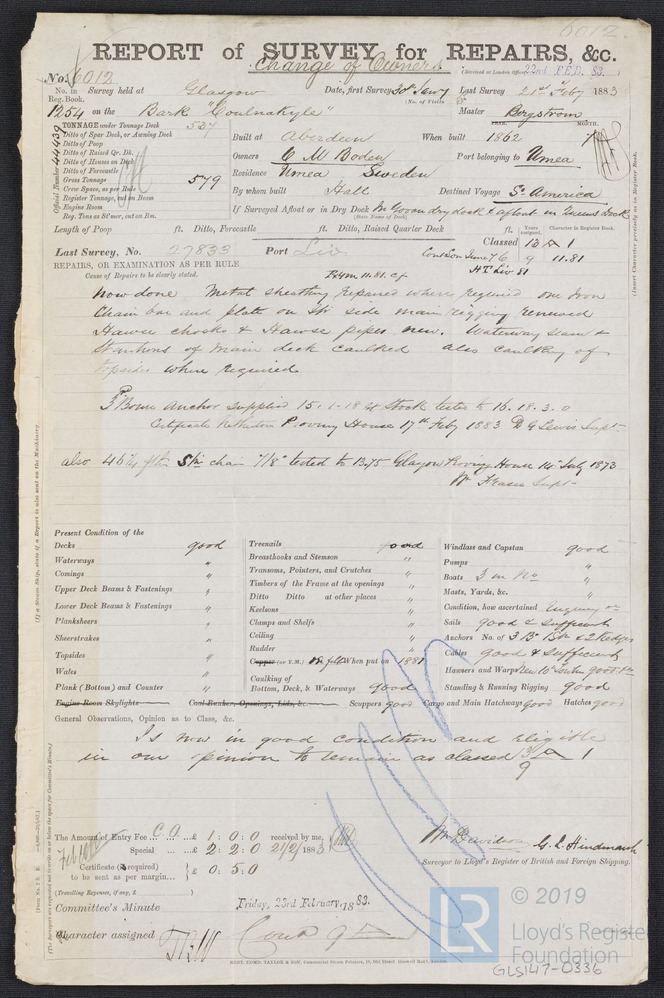 6012
REPORT of SURVEY for REPAIRS, &c.
Change of Owners
(Received at London Office 22nd FEB. 83.)
No. 6012
No. in Reg. Book. Survey held at Glasgow Date, first Survey Last Survey 21st Feby 1883
(No. of Visits
1254 on the Bark "Coulnakyle" Master Borgstrom
TONNAGE under Tonnage Deck 537
YEAR. MONTH.
Ditto of Spar Deck, or Awning Deck
Ditto of Poop
Built at Aberdeen When built 1862 7
Ditto of Raised Qr. Dk.
Ditto of Houses on Deck
Owners C M Boden Port belonging to Umea
Ditto of Forecastle
Gross Tonnage 579
Residence Umea Sweden
Crew Space, as per Rule
Register Tonnage, cut on Beam
By whom built Hall Destined Voyage So America
Engine Room
Reg. Tons as St'mer, cut on Bm.
If Surveyed Afloat or in Dry Dock McGovan dry dock & afloat in Queens Dock
(State Name of Dock)
Official Number 44929
(Insert Character precisely as in Register Book.
Length of Poop ft. Ditto, Forecastle ft. Ditto, Raised Quarter Deck ft.
Years assigned. Character in Register Book.
Classed 13 A 1
Last Survey, No. 27833 Port Liv Cont Lon June 76 9 11.81
REPAIRS, OR EXAMINATION AS PER RULE
Cause of Repairs to be clearly stated.
11.81
Liv 81
Now done Metal sheathing repaired where required one Iron
Chain bar and plate on Str side main rigging renewed
Hawse chocks & Hawse pipes new. Waterway seams &
Stanchions of main deck caulked also caulking of
topsides where required
Bower Anchor supplied 15.1.18 ex Stock tested to 16.18.3.0
Certificate Netherton Proving House 17th Feby 1883 D G Lewis Supt
also 46¼ fths Stm chain 7/8" tested to 13.75 Glasgow Proving House 14th July 1873
Wm Fraser Supt
(If a Steam Ship, state if a Report is also sent on the Machinery.
Present Condition of the
Decks good
Waterways "
Comings "
Upper Deck Beams & Fastenings "
Lower Deck Beams & Fastenings "
Planksheers "
Sheerstrakes "
Topsides "
Wales "
Plank (Bottom) and Counter "
Engine Room Skylights
Treenails good
Breasthooks and Stemson "
Transoms, Pointers, and Crutches "
Timbers of the Frame at the openings "
Ditto Ditto at other places "
Keelsons "
Clamps and Shelfs "
Ceiling "
Rudder "
Copper (or Y.M.) When put on 1881
Caulking of
Bottom, Deck, & Waterways good
Coal Bunker, Openings, Lids, &c. Scuppers good Cargo and Main Hatchways good Hatches good
Windlass and Capstan good
Pumps "
Boats 3 in No "
Masts, Yards, &c. "
Condition, how ascertained
Sails good & sufficient
Anchors No. of 3 Br & 2 Kedges
Cables good & sufficient
Hawsers and Warps
Standing & Running Rigging good
General Observations, Opinion as to Class, &c.
Is now in good condition and eligible
in our opinion to remain as classed 13 A 1
9
The Amount of Entry Fee C.O. £ 1 : 0 : 0 received by me,
Special £ 2 : 2 : 0 21/2/1883
Certificate (if required) to be sent as per margin £ 0 . 5 . 0
(Travelling Expenses, if any, £ )
Wm Davidson G. L. Hindmarsh
Surveyor to Lloyd's Register of British and Foreign Shipping.
Committee's Minute Friday, 23rd February, 1883.
Character assigned Cont 9
© 2019
LR
Lloyd's Register
Foundation
GLS147-0336